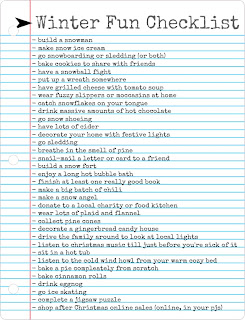 Winter Fun Checklist
~ build a snowman
~ make snow ice cream
~ go snowboarding or sledding (or both)
~ bake cookies to share with friends
~ have a snowball fight
~ put up a wreath somewhere
~ have grilled cheese with tomato soup
~ wear fuzzy slippers or moccasins at home
~ catch snowflakes on your tongue
~ drink massive amounts of hot chocolate
~ go snow shoeing
~ have lots of cider
~ decorate your home with festive lights
~ go sledding
~ breathe in the smell of pine
~ snail-mail a letter or card to a friend
~ build a snow fort
~ enjoy a long hot bubble bath
~ finish at least one really good book
~ make a big batch of chili
~ make a snow angel
~ donate to a local charity or food kitchen
~ wear lots of plaid and flannel
~ collect pine cones
~ decorate a gingerbread candy house
~ drive the family around to look at local lights
~ listen to christmas music till just before you're sick of it
~ sit in a hot tub
~ listen to the cold wind howl from your warm cozy bed
~ bake a pie completely from scratch
~ bake cinnamon rolls
~ drink eggnog
~ go ice skating
~ complete a jigsaw puzzle
~ shop after Christmas online sales (online, in your pjs)